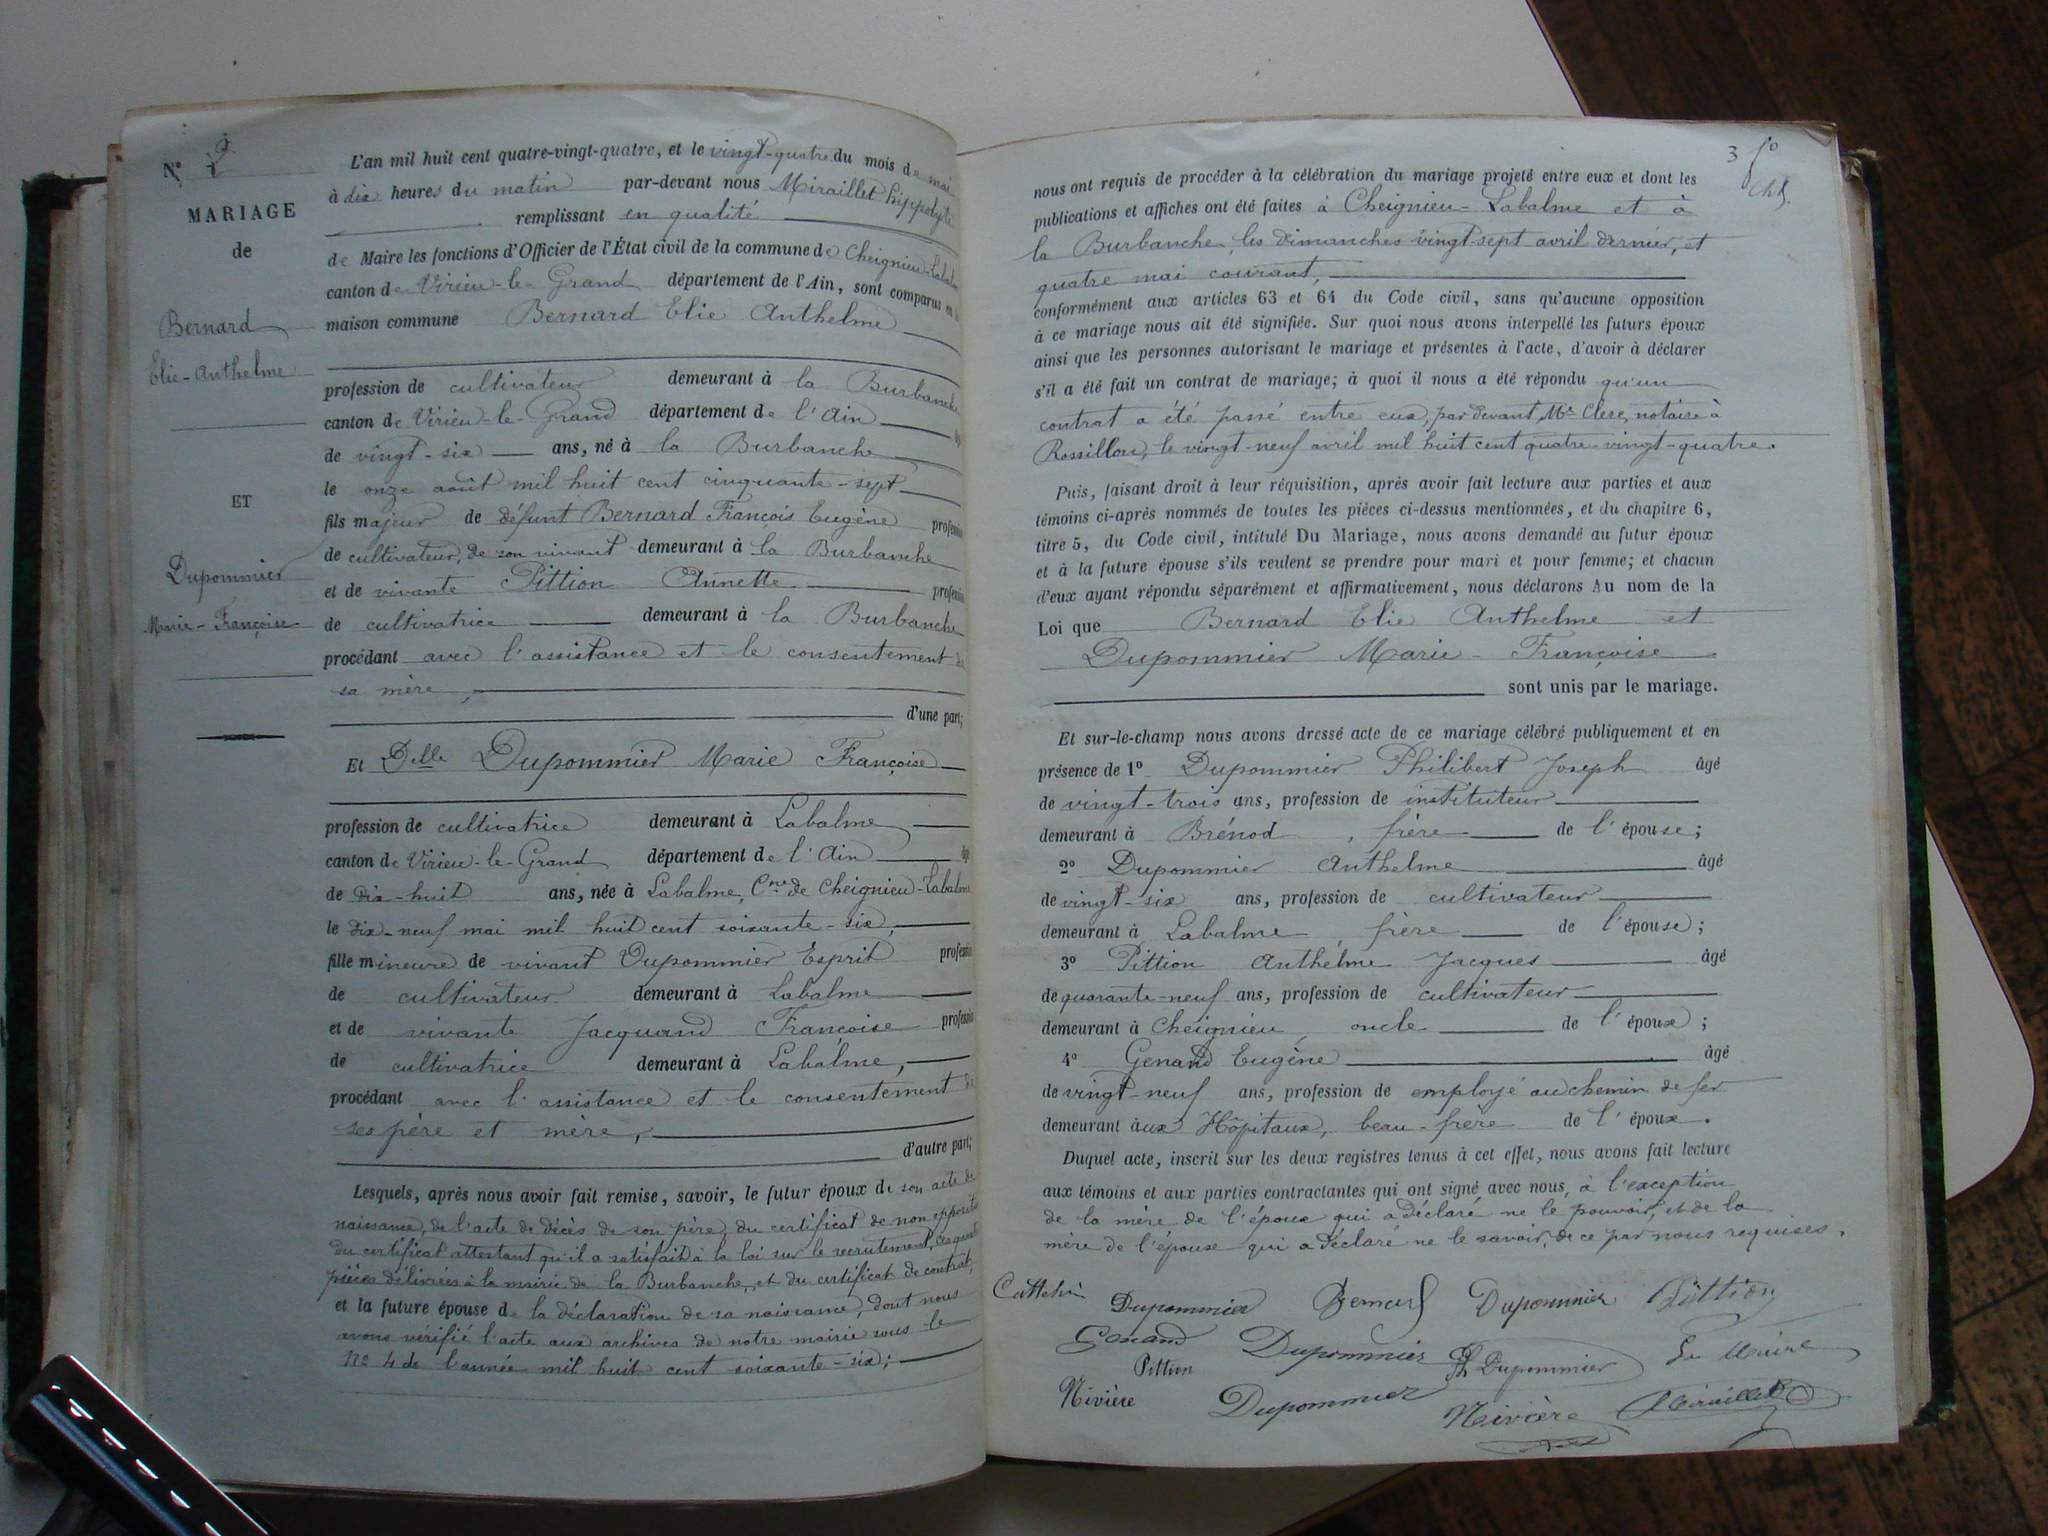 N° 2
MARIAGE
de
Bernard
Elie-Anthelme
ET
Dupommier
Marie-Françoise
L'an mil huit cent quatre-vingt-quatre, et le vingt-quatre du mois de mai
à dix heures du matin par-devant nous Miraillet Hippolyte
remplissant en qualité
de Maire les fonctions d'Officier de l'État civil de la commune de Cheignieu-Labalme
canton de Virieu-le-Grand département de l'Ain, sont comparus en la
maison commune Bernard Elie Anthelme
profession de cultivateur demeurant à la Burbanche
canton de Virieu-le-Grand département de l'Ain
de vingt-six ans, né à la Burbanche
le onze août mil huit cent cinquante-sept
fils majeur de défunt Bernard François Eugène profession
de cultivateur, de son vivant demeurant à la Burbanche
et de vivante Pittion Annette profession
de cultivatrice demeurant à la Burbanche
procédant avec l'assistance et le consentement de
sa mère,
d'une part;
Et Delle Dupommier Marie Françoise
profession de cultivatrice demeurant à Labalme
canton de Virieu-le-Grand département de l'Ain
de dix-huit ans, née à Labalme, Cne de Cheignieu-Labalme
le dix-neuf mai mil huit cent soixante-six,
fille mineure de vivant Dupommier Esprit profession
de cultivateur demeurant à Labalme
et de vivante Jacquand Françoise profession
de cultivatrice demeurant à Labalme,
procédant avec l'assistance et le consentement de
ses père et mère,
d'autre part;
Lesquels, après nous avoir fait remise, savoir, le futur époux de son acte de
naissance, de l'acte de décès de son père, du certificat de non opposition
du certificat attestant qu'il a satisfait à la loi sur le recrutement, ces quatre
pièces délivrées à la mairie de la Burbanche, et du certificat de contrat,
et la future épouse de la déclaration de sa naissance, dont nous
avons vérifié l'acte aux archives de notre mairie sous le
No 4 de l'année mil huit cent soixante-six;
3
nous ont requis de procéder à la célébration du mariage projeté entre eux et dont les
publications et affiches ont été faites à Cheignieu-Labalme et à
la Burbanche, les dimanches vingt-sept avril dernier, et
quatre mai courant,
conformément aux articles 63 et 64 du Code civil, sans qu'aucune opposition
à ce mariage nous ait été signifiée. Sur quoi nous avons interpellé les futurs époux
ainsi que les personnes autorisant le mariage et présentes à l'acte, d'avoir à déclarer
s'il a été fait un contrat de mariage; à quoi il nous a été répondu qu'un
contrat a été passé entre eux, par devant Me Clerc, notaire à
Rossillon, le vingt-neuf avril mil huit cent quatre-vingt-quatre.
Puis, faisant droit à leur réquisition, après avoir fait lecture aux parties et aux
témoins ci-après nommés de toutes les pièces ci-dessus mentionnées, et du chapitre 6,
titre 5, du Code civil, intitulé Du Mariage, nous avons demandé au futur époux
et à la future épouse s'ils veulent se prendre pour mari et pour femme; et chacun
d'eux ayant répondu séparément et affirmativement, nous déclarons Au nom de la
Loi que Bernard Elie Anthelme et
Dupommier Marie-Françoise
sont unis par le mariage.
Et sur-le-champ nous avons dressé acte de ce mariage célébré publiquement et en
présence de 1° Dupommier Philibert Joseph âgé
de vingt-trois ans, profession de instituteur
demeurant à Brénod, frère de l'épouse;
2° Dupommier Anthelme âgé
de vingt-six ans, profession de cultivateur
demeurant à Labalme, frère de l'épouse;
3° Pittion Anthelme Jacques âgé
de quarante-neuf ans, profession de cultivateur
demeurant à Cheignieu, oncle de l'époux;
4° Genand Eugène âgé
de vingt-neuf ans, profession de employé au chemin de fer
demeurant aux Hôpitaux, beau-frère de l'époux.
Duquel acte, inscrit sur les deux registres tenus à cet effet, nous avons fait lecture
aux témoins et aux parties contractantes qui ont signé avec nous, à l'exception
de la mère de l'époux qui a déclaré ne le pouvoir, et de la
mère de l'épouse qui a déclaré ne le savoir, de ce par nous requises.
Dupommier Bernard Dupommier Pittion
Genand Dupommier Ph Dupommier Le Maire
Pittion
Nivière Dupommier Nivière Miraillet